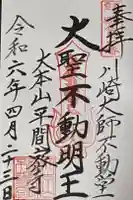 奉拝
川崎大師不動堂
大聖不動明王
大本山平間寺
令和六年四月二十三日